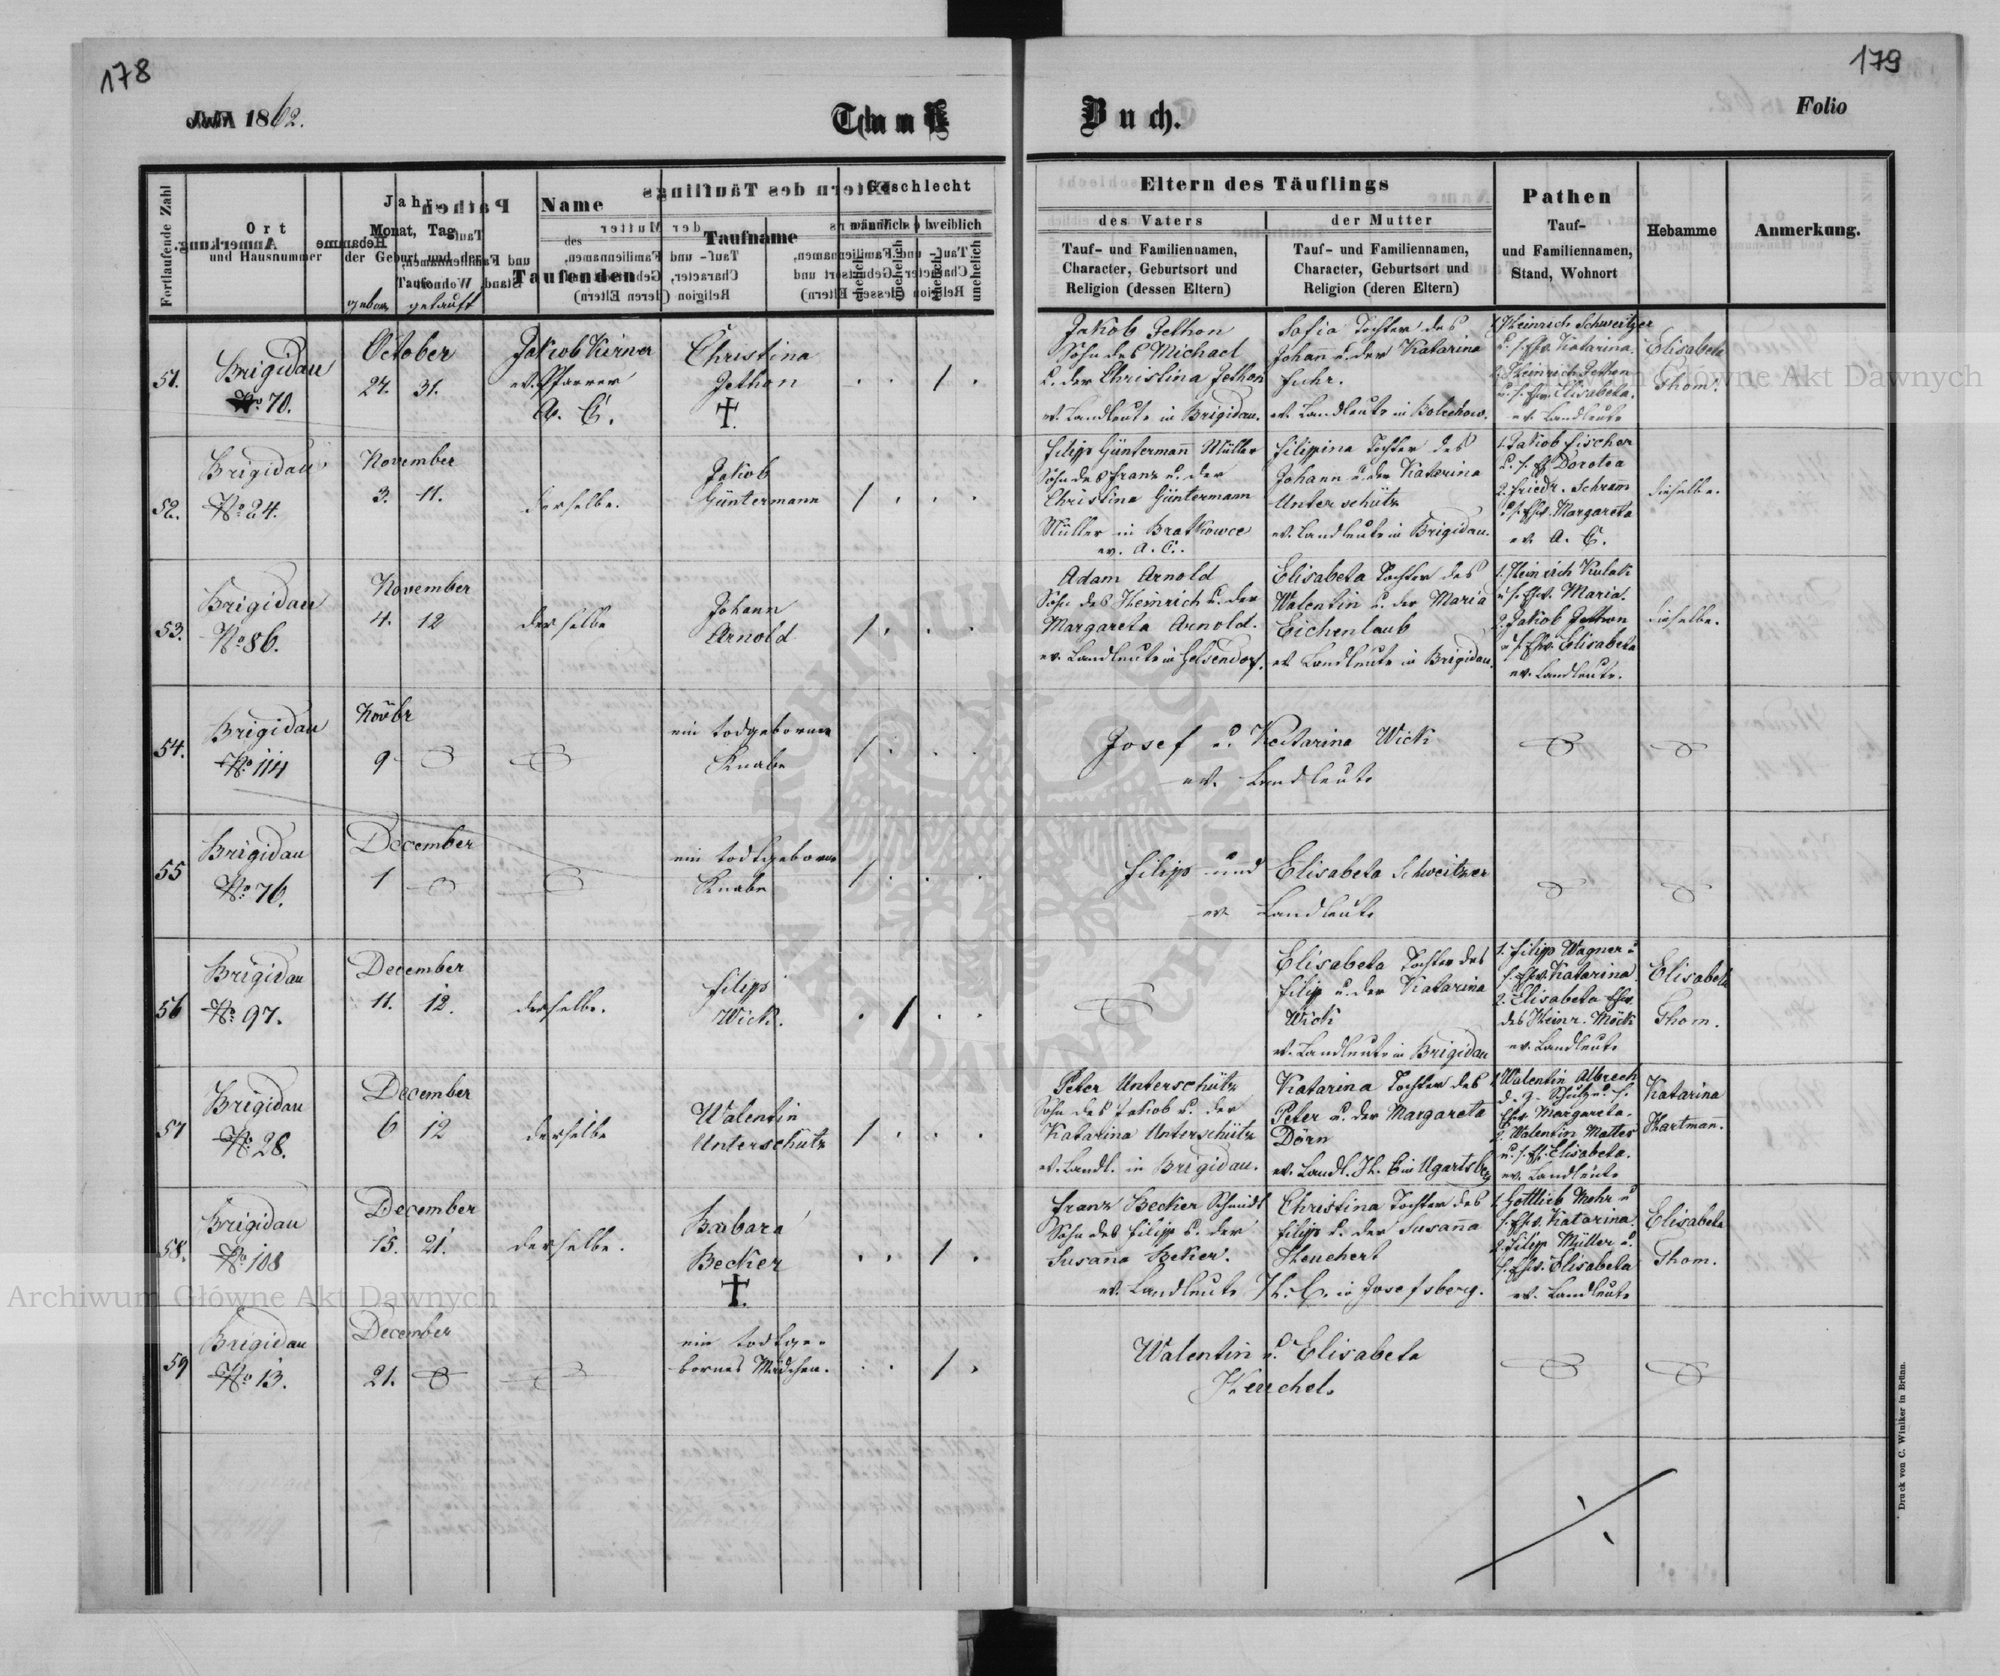 178
1862.
Buch.
Folio
179
Fortlaufende Zahl
Ort
und Hausnummer
Jahr
Monat, Tag
der Geburt und der
Taufe
geboren getauft
Name
des
Taufenden
Taufname
Geschlecht
männlich
weiblich
ehelich
unehelich
ehelich
unehelich
Eltern des Täuflings
des Vaters
Tauf- und Familiennamen,
Character, Geburtsort und
Religion (dessen Eltern)
der Mutter
Tauf- und Familiennamen,
Character, Geburtsort und
Religion (deren Eltern)
Pathen
Tauf-
und Familiennamen,
Stand, Wohnort
Hebamme
Anmerkung.
51.
Brigidau
No. 70.
October
24. 31.
Jakob Kirner
ev. Pfarrer
A. C.
Christina
Jethon
Jakob Jethon
Sohn des Michael
u. der Christina Jethon
ev. Landleute in Brigidau.
Sofia Tochter des
Johann u. der Katarina
Fuhr.
ev. Landleute in Bolechow.
1. Heinrich Schweitzer
u. s. Ehw. Katarina.
2. Heinrich Jethon
u. s. Ehw. Elisabeta.
ev. Landleute
Elisabeta
Thom.
52.
Brigidau
No. 24.
November
3. 11.
derselbe.
Jakob
Güntermann
Filipp Güntermann Müller
Sohn des Franz u. der
Christina Güntermann
Müller in Bratkowce
ev. A. C.
Filippina Tochter des
Johann u. der Katarina
Unterschütz
ev. Landleute in Brigidau.
1. Jakob Fischer
u. s. E. Dorotea
2. Friedr. Schram
u. s. Ehw. Margareta
ev. A. C.
dieselbe.
53.
Brigidau
No. 86.
November
4. 12
derselbe
Johann
Arnold
Adam Arnold
Sohn des Heinrich u. der
Margareta Arnold.
ev. Landleute in Gelsendorf.
Elisabeta Tochter des
Walentin u. der Maria
Eichenlaub
ev. Landleute in Brigidau.
1. Heinrich Kulak
u. s. Ehw. Maria.
2. Jakob Jethon
u. s. Ehw. Elisabeta
ev. Landleute.
dieselbe.
54.
Brigidau
No. 114
Novbr
9
ein todgeborner
Knabe
Josef u. Katarina Wick
ev. Landleute
55
Brigidau
No. 76.
December
1
ein todtgeborner
Knabe
Filipp und Elisabeta Schweitzer
ev. Landleute
56
Brigidau
No. 97.
December
11. 12.
derselbe.
Filipp
Wick.
Elisabeta Tochter des
Filip u. der Katarina
Wick
ev. Landleute in Brigidau
1. Filipp Wagner u
s. Ehw. Katarina
2. Elisabeta Ehw.
des Heinr. Möck
ev. Landleute
Elisabeta
Thom.
57
Brigidau
No. 28.
December
6 12
derselbe
Walentin
Unterschütz
Peter Unterschütz
Sohn des Jakob u. der
Katarina Unterschütz
ev. Landl. in Brigidau.
Katarina Tochter des
Peter u. der Margareta
Dörn
ev. Landl. H. C. in Ugartsberg
1. Walentin Albrech
Ehw. Margareta.
2. Walentin Mattes
u. s. E. Elisabeta.
ev. Landleute
Katarina
Hartmann.
58.
Brigidau
No. 108
December
15. 21.
derselbe.
Barbara
Becker
Franz Becker Schmidt
Sohn des Filipp u. der
Susanna Beker.
Christina Tochter des
Filipp u. der Susanna
Heuchert
ev. Landleute H. C. in Josefsberg.
1. Gottlieb Mohr u
s. Ehw. Katarina.
2. Filipp Müller u.
s. Ehw. Elisabeta
ev. Landleute
Elisabeta
Thom.
59
Brigidau
No. 13.
December
21.
ein todtge-
bornes Mädchen.
Walentin u. Elisabeta
Heuchel.
Druck von C. Winiker in Brünn.
Archiwum Główne Akt Dawnych
Archiwum Główne Akt Dawnych